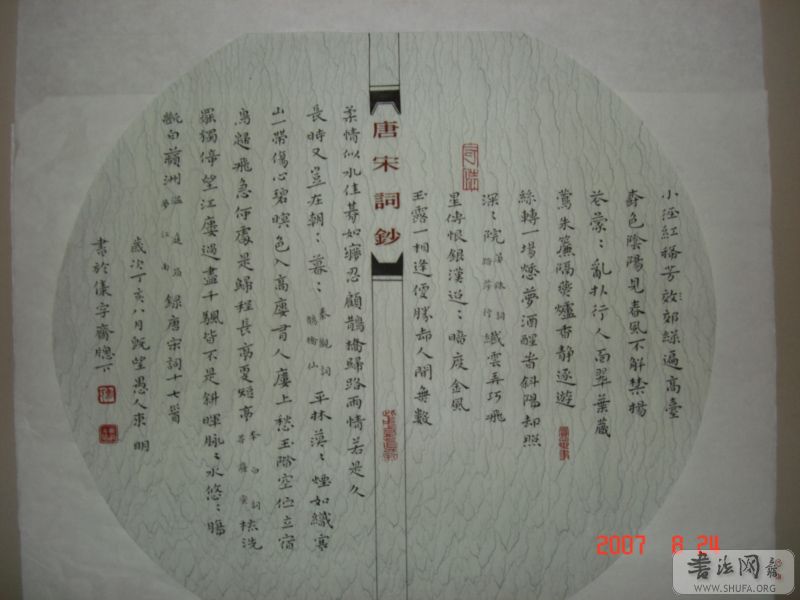 小逕紅稀芳效郊綠遍高臺
春色陰陽見春風不解禁楊
花蒙〻亂扑行人面翠葉藏
鶯朱簾隔㷊爐香靜逐遊
絲轉一場愁夢酒醒昔斜陽却照
深〻院 晏殊詞 踏莎行 纖雲弄巧飛
星傳恨銀漢迢〻暗度金風
玉露一相逢便勝却人間無數
唐宋詞鈔
柔情似水佳期如夢忍顧鵲橋歸路兩情若是久
長時又豈在朝〻暮〻 秦觀詞 鵲橋仙 平林漠〻煙如織寒
山一帶傷心碧暝色入高廔有人廔上愁玉階空佇立宿
鳥歸飛急何處是歸程長亭更短亭 李白詞 菩薩蠻 梳洗
罷獨倚望江廔過盡千颿皆不是斜暉脉〻水悠〻腸
斷白蘋洲 溫庭筠 夢江南 錄唐宋詞十七首
歲次丁亥八月既望愚人來明
書於儀字齋牕下
2007 8 24
書法网
WWW.SHUFA.ORG